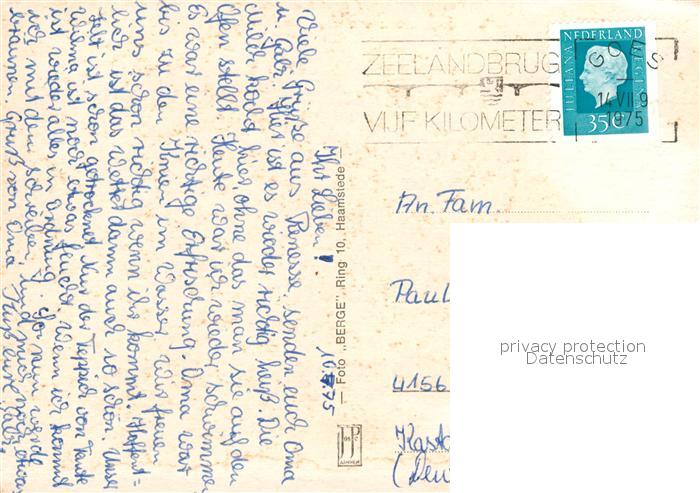 Ihr Lieben! 10.7.75
Viele Grüße aus Renesse, senden euch Oma
u. Gabi. Hier ist es wieder richtig heiß. Die
Müller kocht hier, ohne das man sie auf den
Ofen stellt. Heute war ich wieder schwimmen
es war eine richtige Erfrischung. Oma war
bis zu den Knien im Wasser. Wir freuen
uns schon richtig wenn ihr kommt. Hoffent-
lich ist das Wetter dann auch so schön. Unser
Zelt ist schon getrocknet. Nur der Teppich von Tante
Wilma ist noch etwas feucht. Wenn ihr kommt
ist wieder alles in Ordnung. So nun werde
ich mit dem schreiben und mich noch etwas
bräunen. Gruß von Oma
Gruß eure Gabi.
— Foto „BERGE" Ring 10, Haamstede —
JosPé
ARNHEM
ZEELANDBRUG
VIJF KILOMETER
GOES
14 VII 9
1975
NEDERLAND
JULIANA REGINA
35c
An Fam.
Paul
4156
Kast
(Deu
privacy protection
Datenschutz